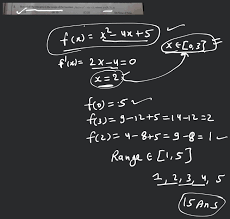 f(x) = x² - 4x + 5
x ∈ [0, 3]
f'(x) = 2x - 4 = 0
x = 2
f(0) = 5 ✓
f(3) = 9 - 12 + 5 = 14 - 12 = 2
f(2) = 4 - 8 + 5 = 9 - 8 = 1 ✓
Range ∈ [1, 5]
1, 2, 3, 4, 5
15 Ans